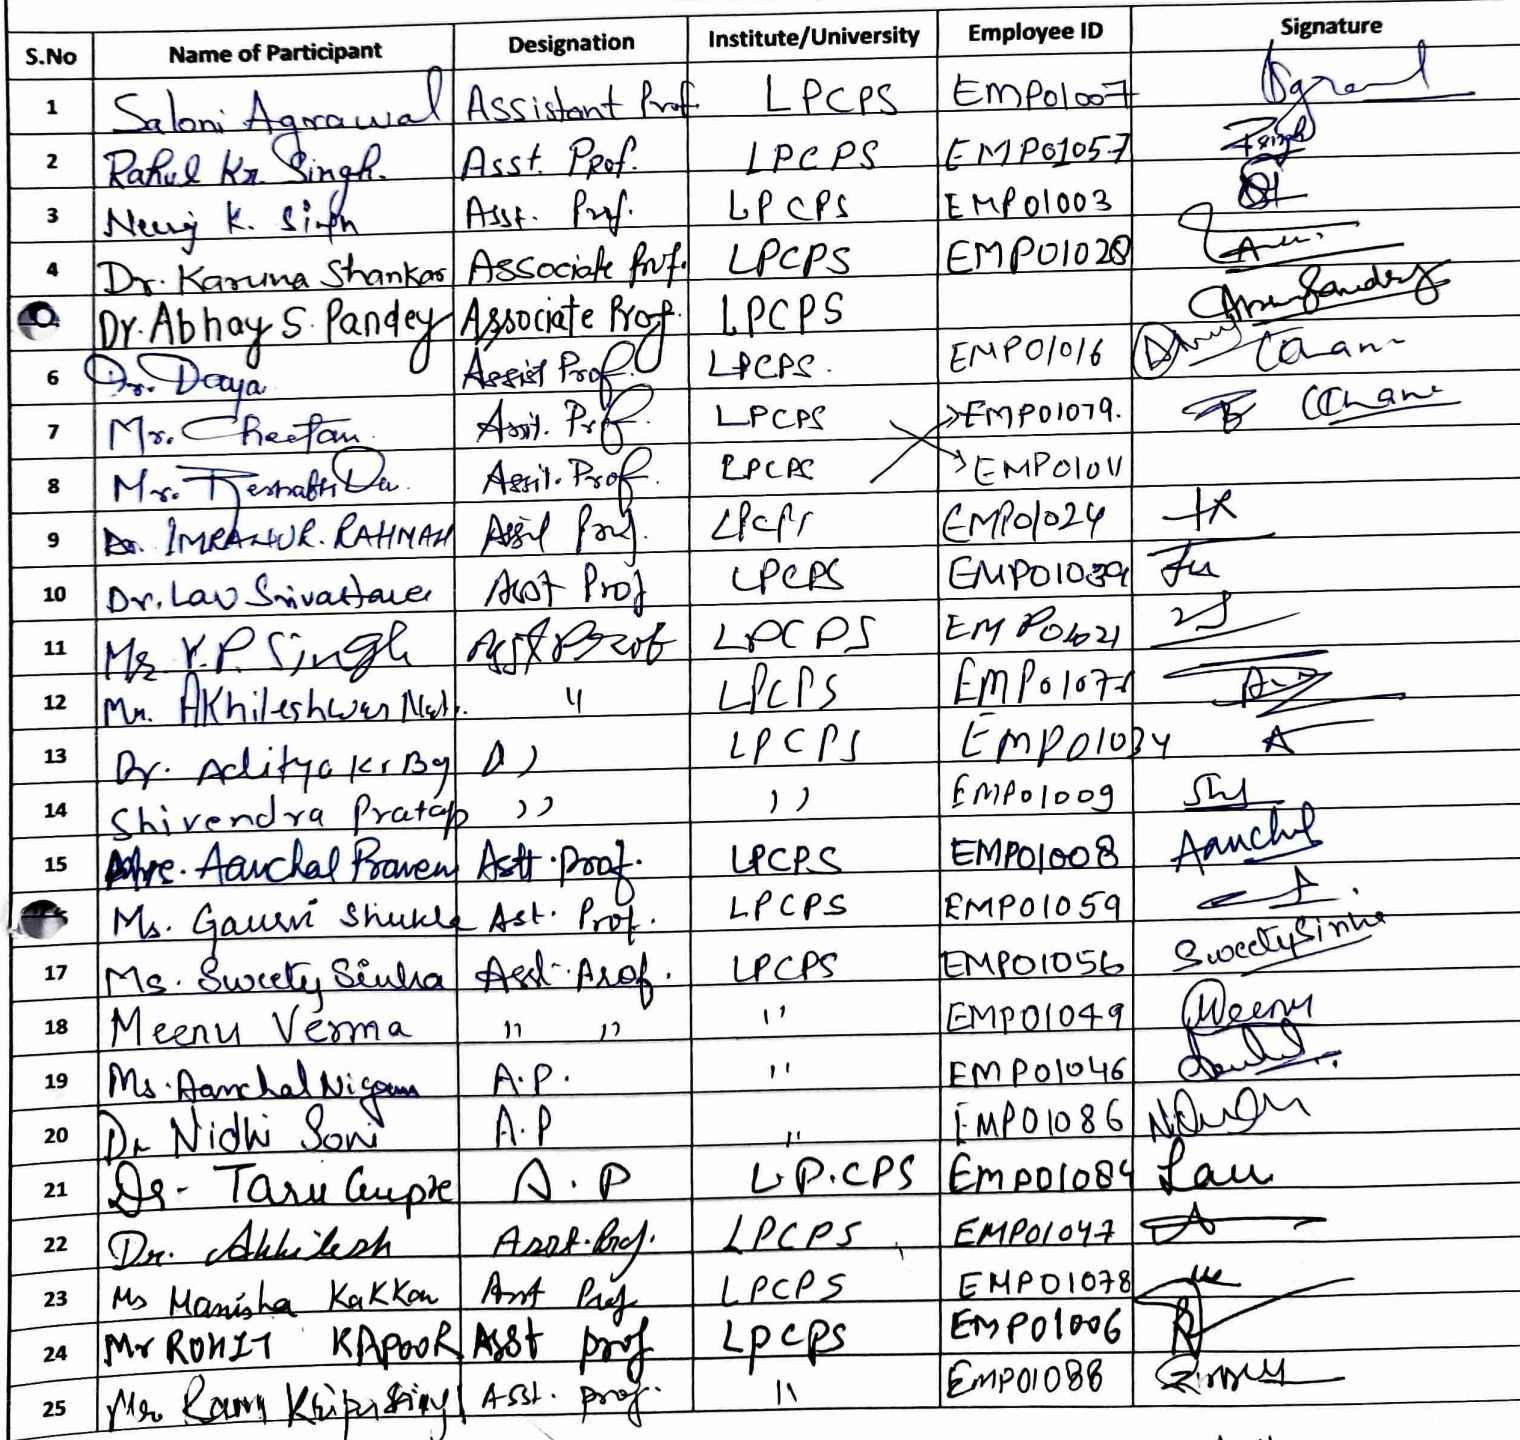 S.No Name of Participant Designation Institute/University Employee ID Signature
1 Saloni Agrawal Assistant Prof. LPCPS EMP01007 Agrawal
2 Rahul Kr. Singh. Asst. Prof. LPCPS EMP01057 Rsingh
3 Neeraj K. Singh Asst. Prof. LPCPS EMP01003
4 Dr. Karuna Shankar Associate Prof. LPCPS EMP01028
Dr. Abhay S. Pandey Associate Prof. LPCPS
6 Dr. Daya Assist Prof. LPCPS. EMP01016
7 Mr. Cheetan Assit. Prof LPCPS EMP01079.
8 Mr. Assit. Prof. LPCPS EMP01011
9 Dr. IMRANUR. RAHMAN Assit Prof. LPCPS EMP01024
10 Dr. Lav Srivastava Asst Prof LPCPS EMP01039
11 Mr Y.P. Singh Asst Prof LPCPS EMP01021
12 Mr. Akhileshwar Nath. " LPCPS
13 Dr. Aditya Kr LPCPS EMP01034
14 Shivendra Pratap " " EMP01009
15 Aanchal Praveen Astt. Prof. LPCPS EMP01008 Aanchal
Ms. Gaurvi Shukla Ast. Prof. LPCPS EMP01059
17 Ms. Sweety Sinha Asst. Prof. LPCPS EMP01056 Sweety Sinha
18 Meenu Verma " " " EMP01049 Meenu
19 Ms. Aanchal Nigam A.P. " EMP01046
20 Dr Nidhi Soni A.P " EMP01086
21 Dr. Taru Gupta A.P L.P.CPS EMP01084
22 Dr. Akhilesh Asst. Prof. LPCPS EMP01047
23 Ms Manisha Kakkar Asst Prof LPCPS EMP01078
24 Mr ROHIT KAPOOR Asst prof LPCPS EMP01006
25 Mr. Asst. prof. " EMP01088